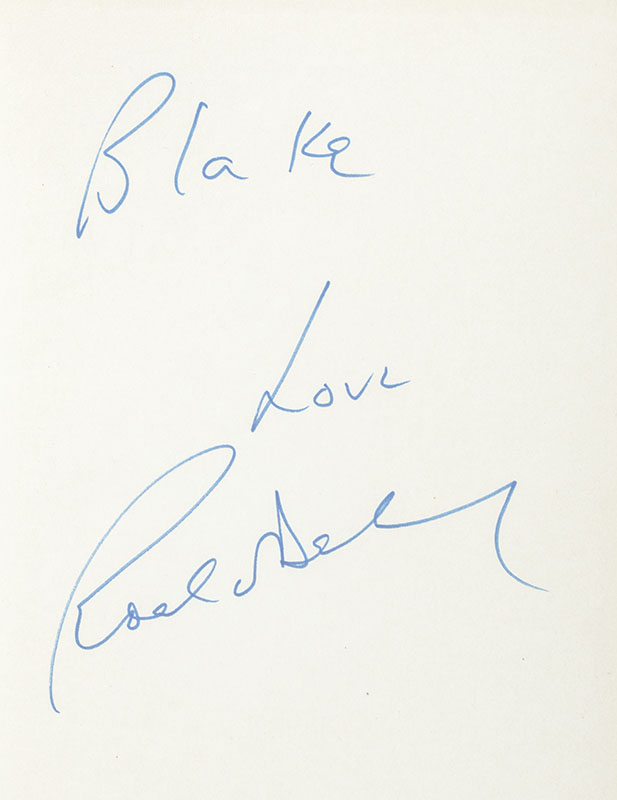 Blake
Love
Roald Dahl